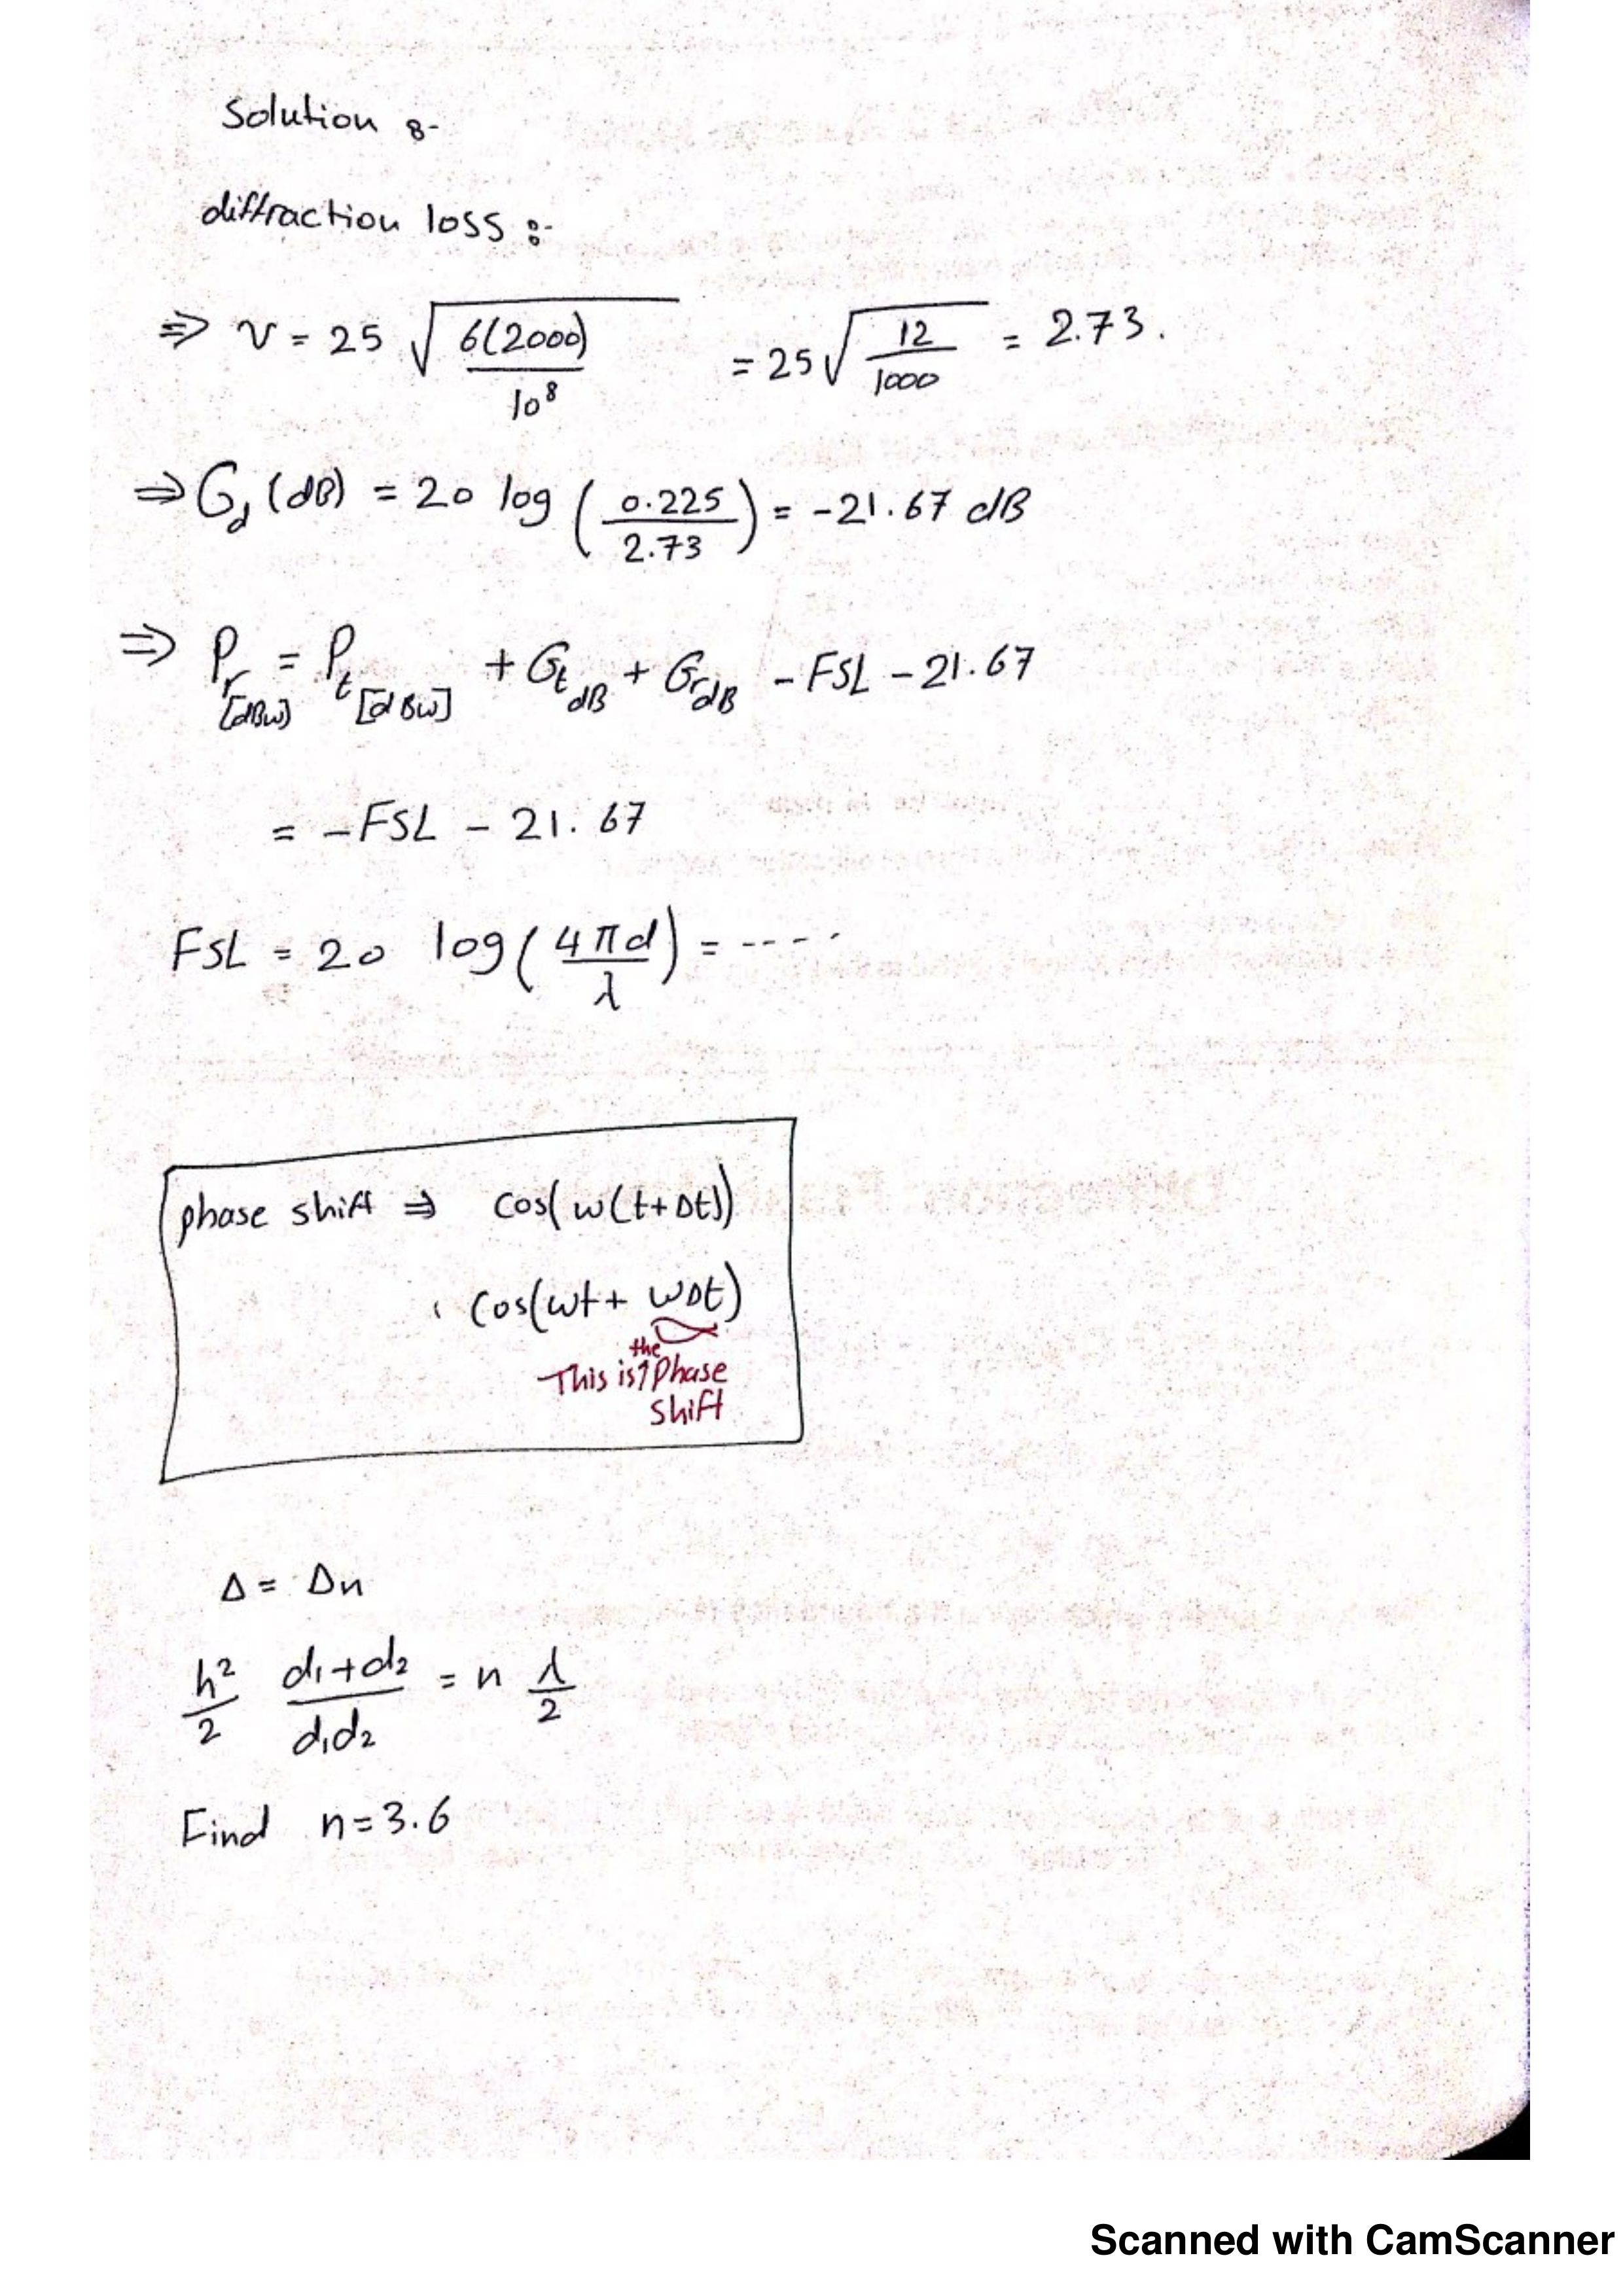 Solution :-
diffraction loss :-
⇒ v = 25 √(6(2000)/10⁸) = 25 √(12/1000) = 2.73.
⇒ G_d (dB) = 20 log (0.225/2.73) = -21.67 dB
⇒ P_r [dBW] = P_t [dBW] + G_t dB + G_r dB - FSL - 21.67
= -FSL - 21.67
FSL = 20 log(4πd/λ) = ----
phase shift ⇒ cos(w(t+Δt))
cos(wt + wΔt)
This is the phase
shift
Δ = Δn
h²/2 (d₁+d₂)/(d₁d₂) = n λ/2
Find n=3.6
Scanned with CamScanner